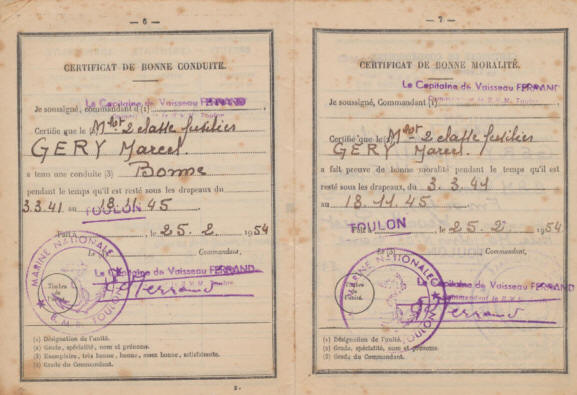 — 6 —
CERTIFICAT DE BONNE CONDUITE.
Le Capitaine de Vaisseau FERRAND
Je soussigné, commandant d (1)
Certifie que le Mlot 2e classe fusilier
GERY Marcel
a tenu une conduite (3) Bonne
pendant le temps qu'il est resté sous les drapeaux du
3.3.41 au 18.11.45
TOULON
Fait à , le 25.2 1954
Le Commandant,
Le Capitaine de Vaisseau FERRAND
MARINE NATIONALE
TOULON
Timbre
unité.
Ferrand
(1) Désignation de l'unité.
(2) Grade, spécialité, nom et prénoms.
(3) Exemplaire, très bonne, bonne, assez bonne, satisfaisante.
(4) Grade du Commandant.
2.
— 7 —
CERTIFICAT DE BONNE MORALITÉ.
Le Capitaine de Vaisseau FERRAND
Je soussigné, Commandant (1)
Certifie que le Mlot 2e classe fusilier
GERY Marcel
a fait preuve de bonne moralité pendant le temps qu'il est
resté sous les drapeaux, du 3.3.41
au 18.11.45
TOULON
Fait à , le 25.2 1954
Le (3) Commandant,
Le Capitaine de Vaisseau FERRAND
MARINE NATIONALE
TOULON
Timbre
unité.
Ferrand
(1) Désignation de l'unité.
(2) Grade, spécialité, nom et prénoms.
(3) Grade du Commandant.